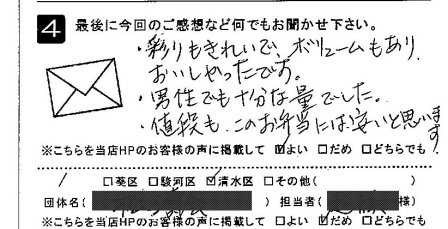 4 最後に今回のご感想など何でもお聞かせ下さい。
・彩りもきれいで、ボリュームもあり
おいしかったです。
・男性でも十分な量でした。
・値段も、このお弁当には安いと思います。
※こちらを当店HPのお客様の声に掲載して ☑よい □だめ □どちらでも
□葵区 □駿河区 ☑清水区 □その他( )
団体名( ) 担当者( 様)
※こちらを当店HPのお客様の声に掲載して □よい ☑だめ □どちらでも